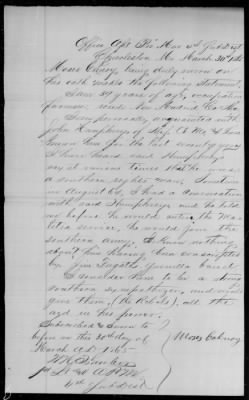 Office Asst Pro Mar 4th Sub Dist
Charleston Mo March 30th 1865
Moses Cahooy, being duly sworn on
his oath makes the following statement.
I am 37 years of age, occupation
farmer, reside New Madrid Co Mo
I am personally acquainted with
John Humphreys of Co Mo & have
known him for the last twenty years
I have heard said Humphreys
say at various times that he was
a southern man. Sometime
in August 64, I had a conversation
with said Humphreys and he told
me before he would enter the Mi-
litia service, he would join the
southern army. I know nothing
about him having been conscripted
by guerrilla band.
I consider him to be a strong
southern sympathizer, and would
give them (the Rebels), all the
aid in his power.
Subscribed & Sworn to
before me this 30th day of
March A.D. 1865
Moses Cahooy
1st Lt & A.P.M.
4th Sub Dist